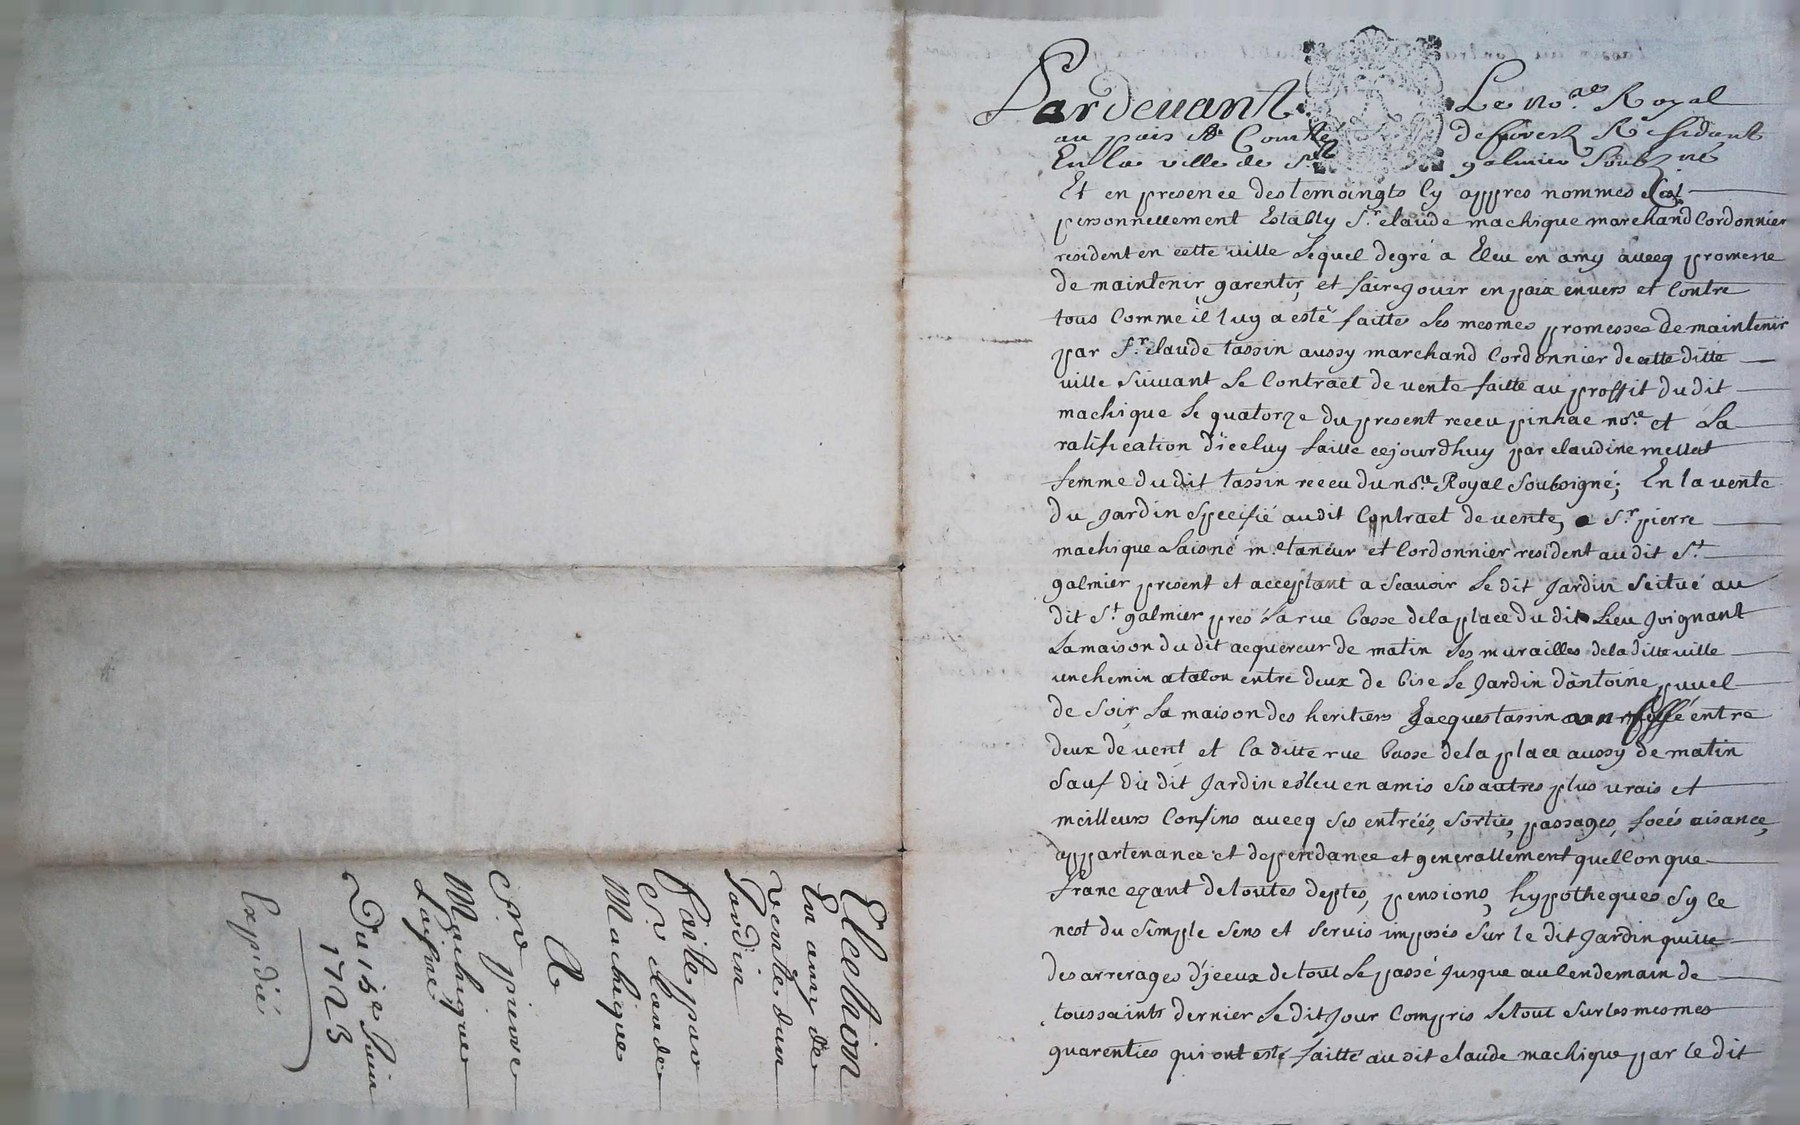 Pardevant Le no.re Royal
au pais & Comté de forest Residant
En la ville de St galmier Soubz.né
Et en presence des temoingts Cy appres nommes
personnellement Estably Sr. claude machique marchand Cordonnier
resident en cette ville Lequel de gré a Eleu en amy avecq promesse
de maintenir garentir et faire jouir en paix envers et Contre
tous Comme il luy a esté faitte Les mesmes promesses de maintenir
par Sr. claude tassin aussy marchand Cordonnier de cette ditte
ville suivant Le Contract de vente faitte au proffit du dit
machique Le quatorze du present receu pinhac no.re et La
ratification d'iceluy faitte cejourdhuy par claudine mellet
femme du dit tassin receu du no.re Royal Soubsigné; En la vente
du Jardin specifié audit Contract de vente, a Sr. pierre
machique Laisné m.e taneur et Cordonnier resident au dit St.
galmier present et acceptant a scavoir Le dit Jardin scitué au
dit St. galmier pres La rue basse de la place du dit Lieu Joignant
La maison du dit acquereur de matin Les murailles de la ditte ville
un chemin a talon entre deux de bise Le Jardin d'antoine
de Soir La maison des heritiers Jacques tassin entre
deux de vent et la ditte rue basse de la place aussy de matin
Sauf du dit Jardin esleu en amis ses autres plus vrais et
meilleurs Confins avecq ses entrées, sorties, passages, aisance,
appartenance et dependance et generallement quellonque
franc de toutes deptes, pensions, hypotheques sy ce
nest du simple sens et servis imposés sur le dit Jardin quitte
des arrerages d'jceux de tout Le passé Jusque au lendemain de
toussaints dernier Le dit Jour Compris Le tout sur les mesmes
guarenties qui ont esté faitte au dit claude machique par le dit
Election
En amy de
vente dun
Jardin
Faite par
Sr. Claude
Machique
A
Sr. pierre
Machique
Laisné
Du 15e Juin
1723
Expédié